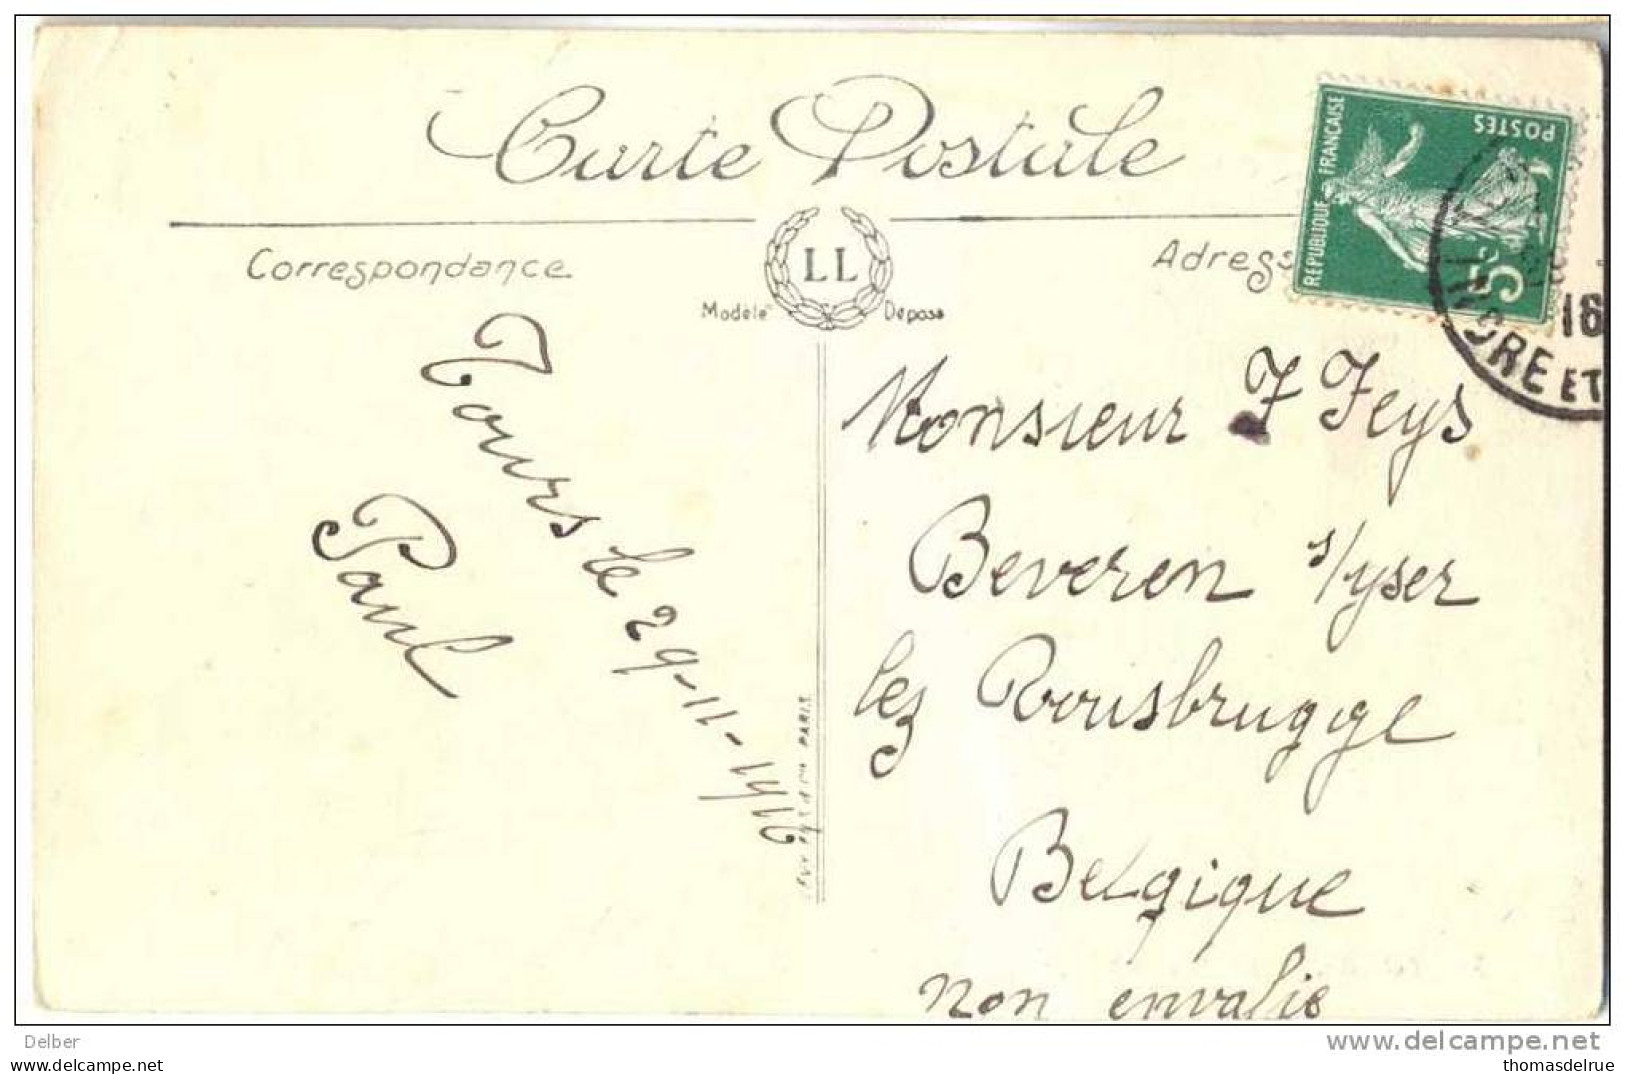 Carte Postale
Correspondance
LL
Modèle Déposé
Adress
REPUBLIQUE FRANÇAISE
POSTES
5
16
DRE ET
Tours le 29-11-1916
Paul
Monsieur J Feys
Beveren s/yser
lez Rousbrugge
Belgique
non envalie
PARIS
Delber
www.delcampe.net
thomasdelrue